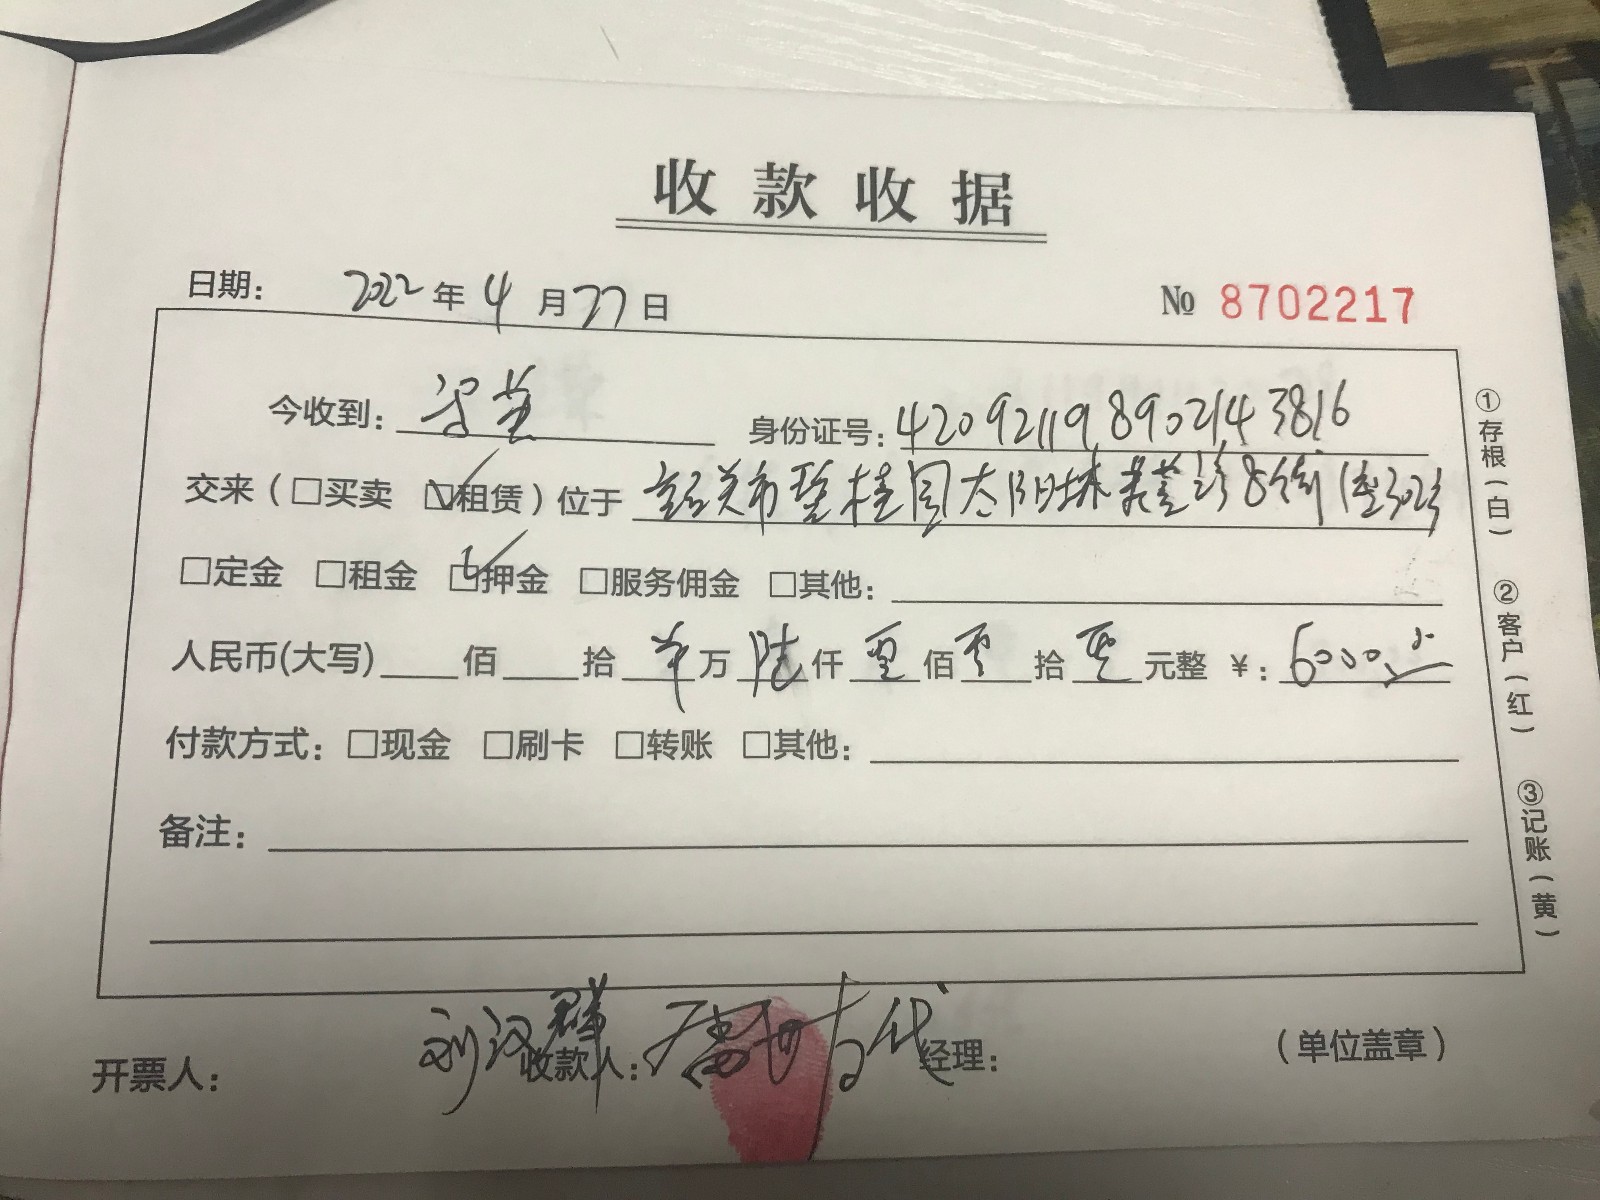 收款收据
日期： 2022年4月27日 № 8702217
今收到： 身份证号：420921198902143816
交来（□买卖 ☑租赁）位于 韶关市碧桂园太阳城 8街 座302
□定金 □租金 ☑押金 □服务佣金 □其他：
人民币(大写) 佰 拾 万 陆仟零佰零拾零元整 ￥：6000
付款方式：□现金 □刷卡 □转账 □其他：
备注：
刘汉群 代
开票人： 收款人： 经理： （单位盖章）
①存根（白） ②客户（红） ③记账（黄）